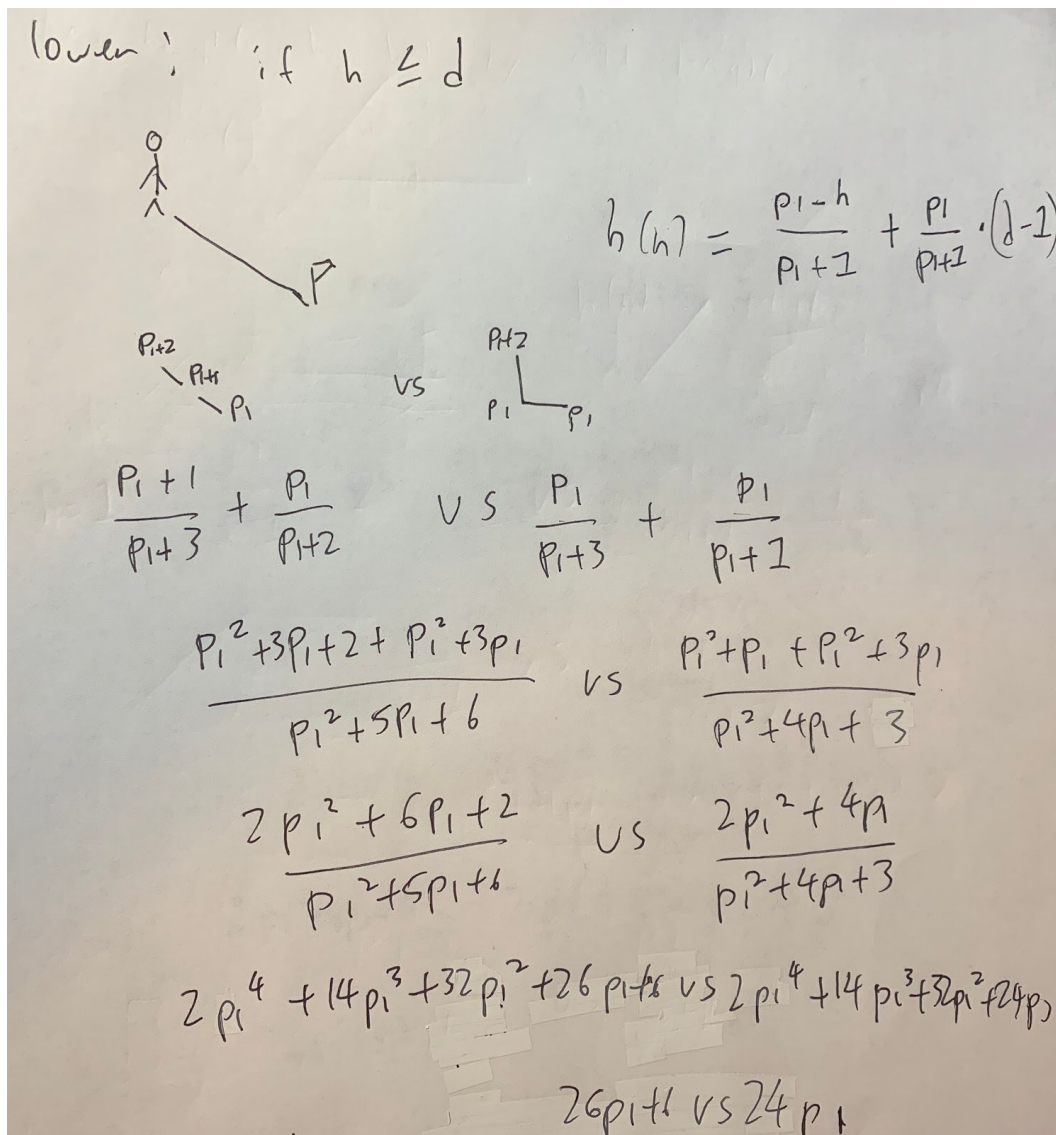 lower : if h ≤ d
h(n) = (p1-h)/(p1+1) + p1/(p1+1) · (d-1)
P
P1+2
P1+2
P1+1
vs
P1
P1
P1
(P1+1)/(P1+3) + P1/(P1+2) VS P1/(P1+3) + p1/(p1+1)
(P1²+3P1+2+P1²+3p1)/(P1²+5P1+6) vs (P1²+P1+P1²+3p1)/(P1²+4P1+3)
(2p1²+6P1+2)/(P1²+5p1+6) VS (2p1²+4p1)/(p1²+4p1+3)
2p1⁴+14p1³+32p1²+26p1+6 vs 2p1⁴+14p1³+32p1²+24p1
26p1+6 vs 24p1